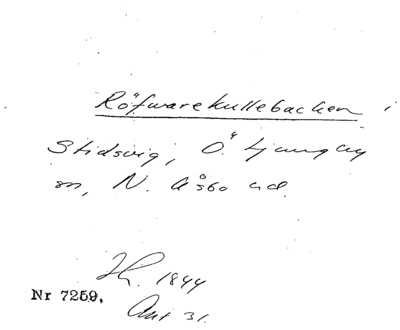 Röfwarekullebacken i
Stidsvig, Ö. Ljungby
sn, N. Åsbo hd.
Th. 1844
Nr 7259. Akt 31.